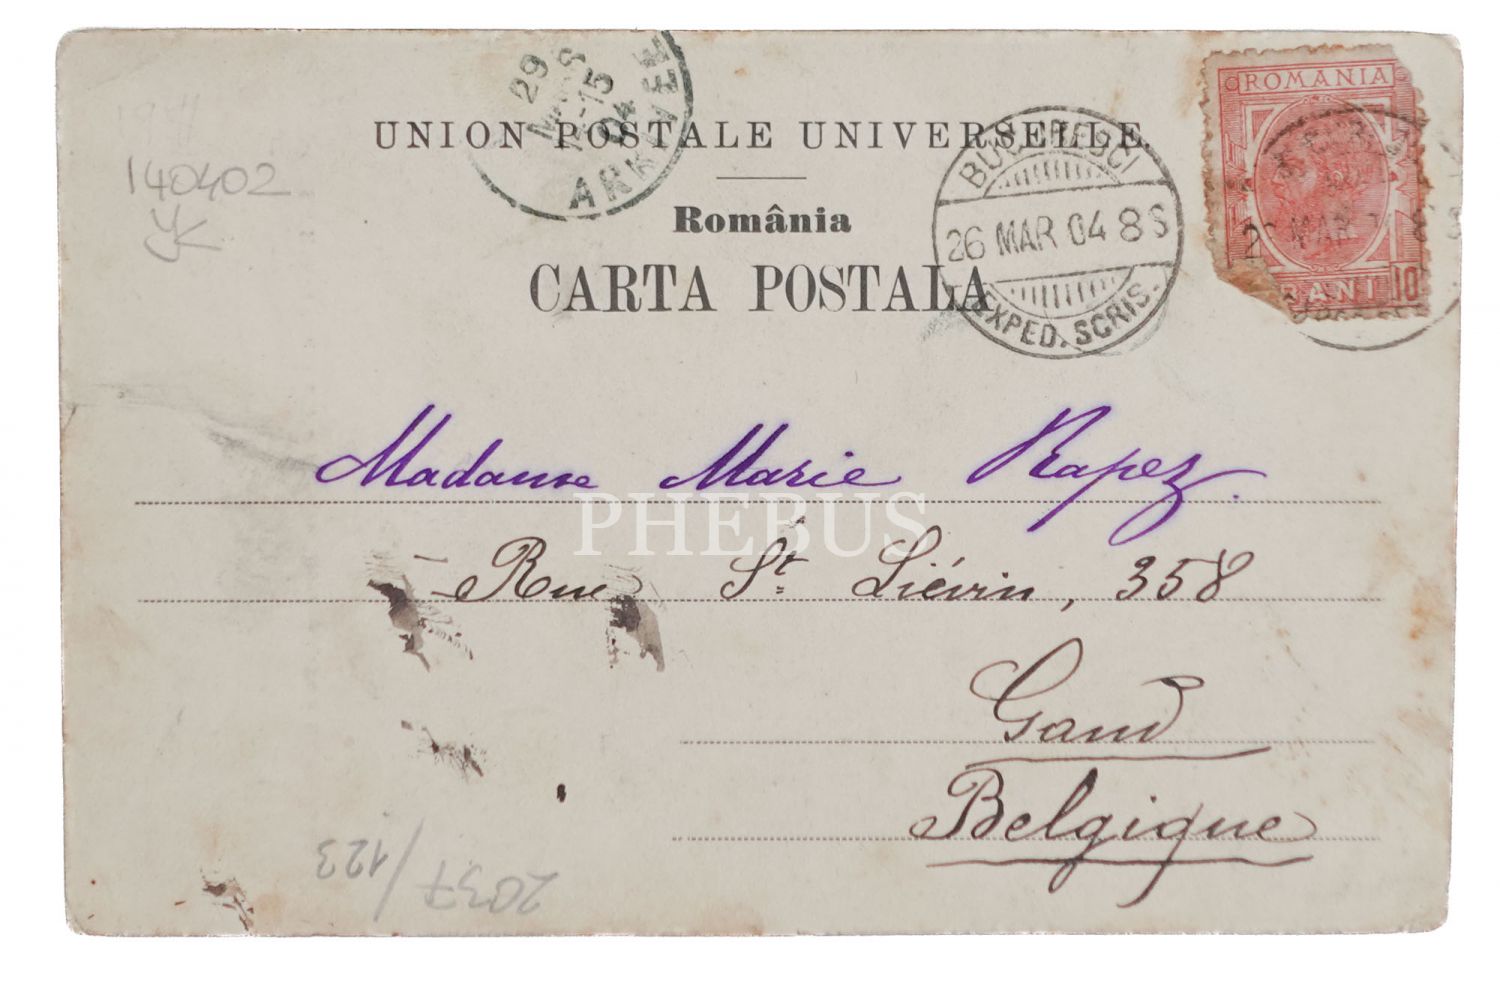 UNION POSTALE UNIVERSELLE.
România
CARTA POSTALA
29
15
04
BUCURESCI
26 MAR 04 8S
EXPED. SCRIS.
ROMANIA
BANI 10
140402
Madame Marie Rapez.
PHEBUS
Rue St Liévin, 358
Gand
Belgique
2037/123